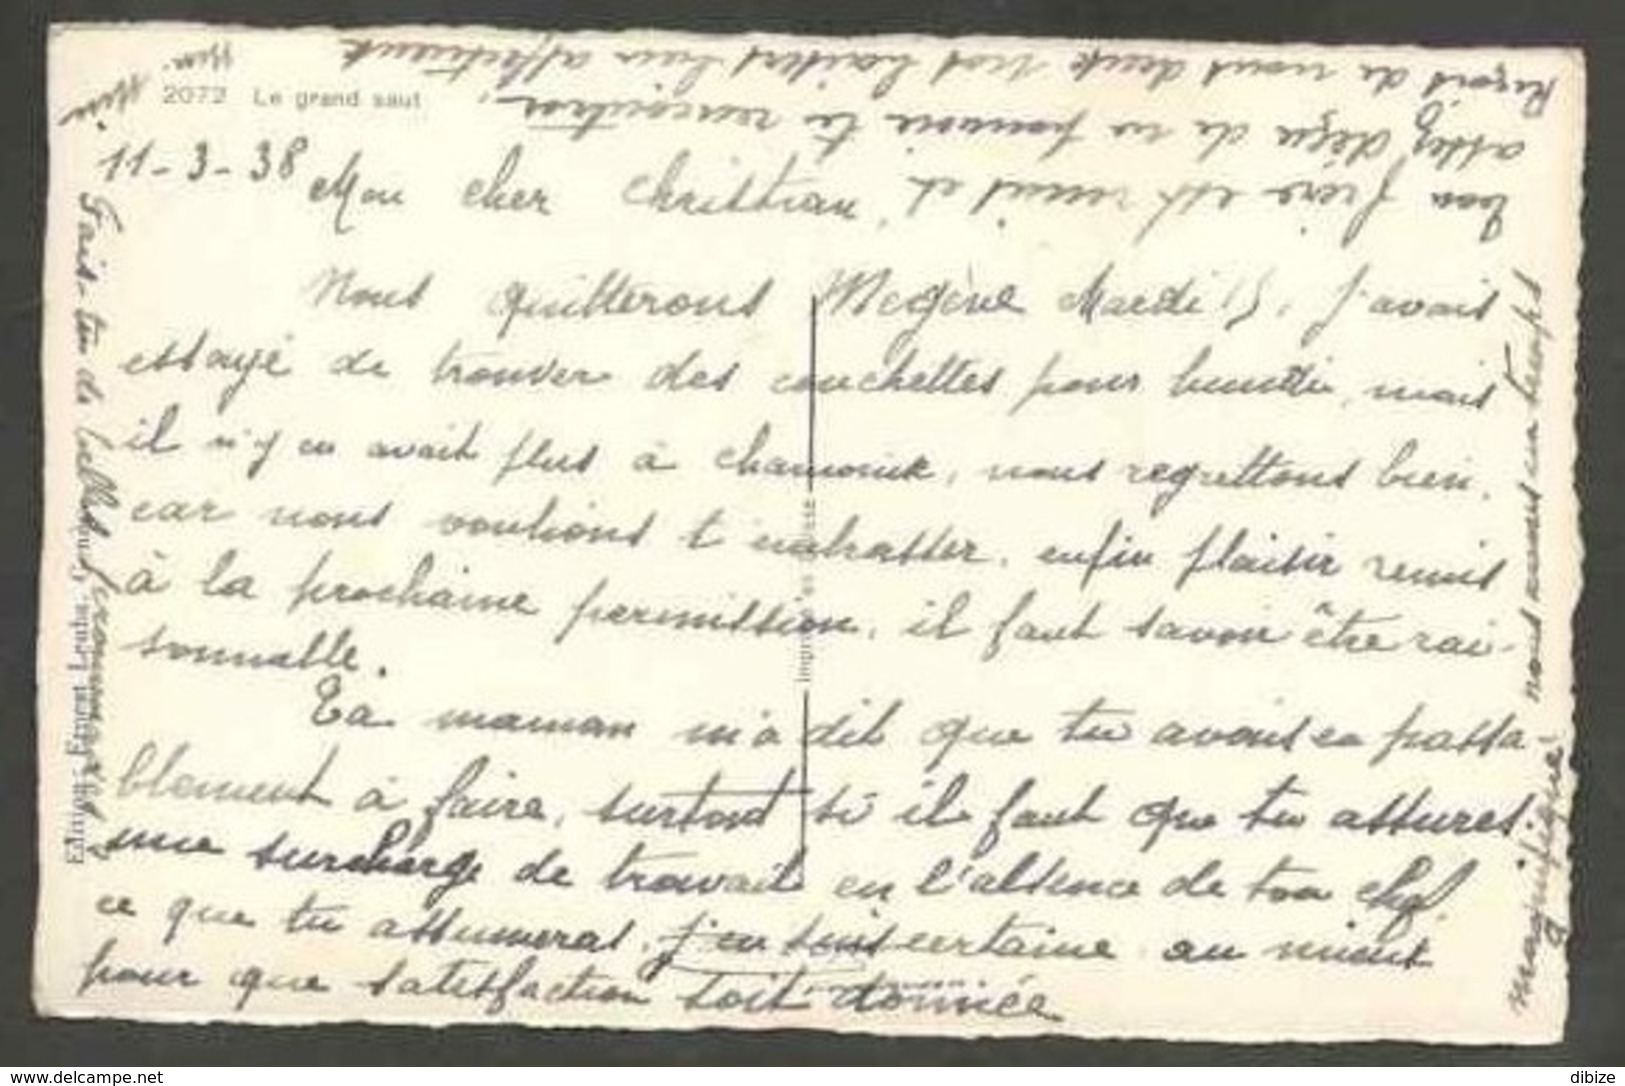 2072 Le grand saut
11-3-38
Mon cher Christian,
Nous quitterons Megève Mardi 15, j'avais
essayé de trouver des couchettes pour lundi, mais
il n'y en avait plus à Chamonix, nous regrettons bien,
car nous voulions t'embrasser, enfin plaisir remis
à la prochaine permission, il faut savoir être rai-
sonnable.
Ta maman m'a dit que tu avais en passa-
blement à faire, surtout si il faut que tu assures
une surcharge de travail en l'absence de ton chef.
ce que tu assumeras, j'en suis certaine au mieux
pour que satisfaction soit donnée
nous avons un temps
magnifique
Fais-tu de belles promenades
ton frère est remis et
assez déçu de ne pouvoir te rencontrer.
Reçois de nous deux nos baisers bien affectueux
Edition Etagat Leuba,